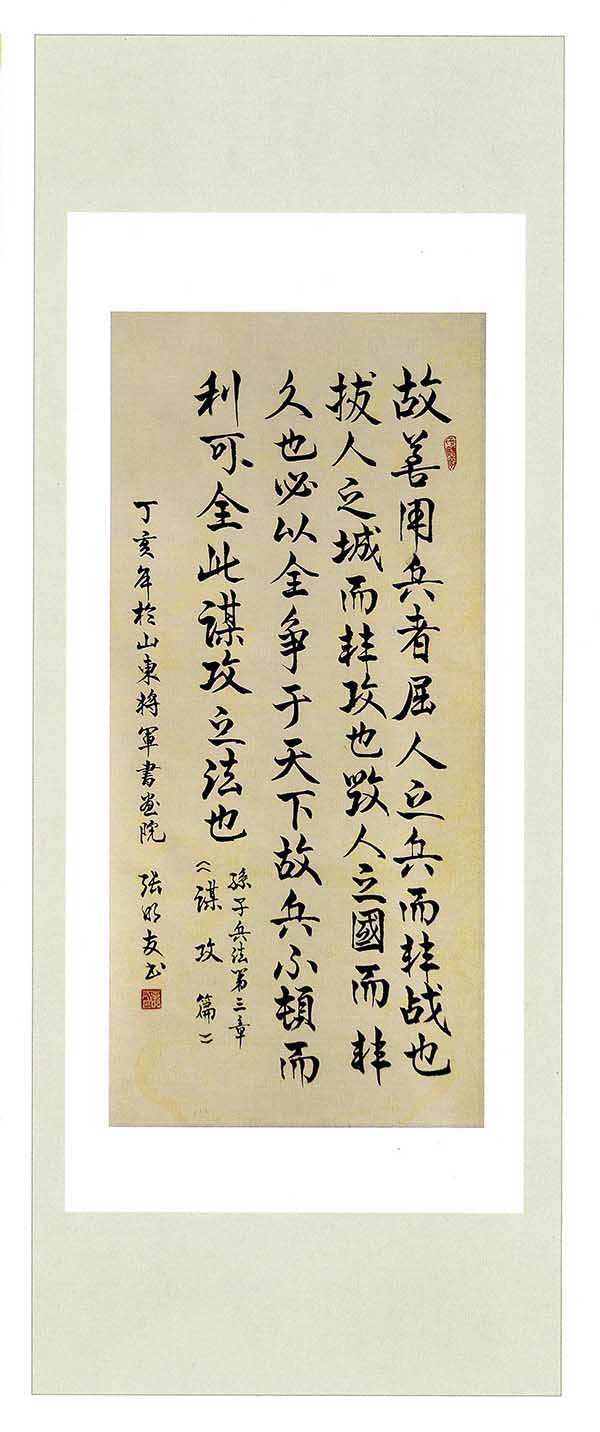 故善用兵者屈人之兵而非战也
拔人之城而非攻也毁人之國而非
久也必以全争于天下故兵不頓而
利可全此謀攻之法也
孫子兵法第三章
《謀攻篇》
丁亥年於山東将軍書画院 張明友书